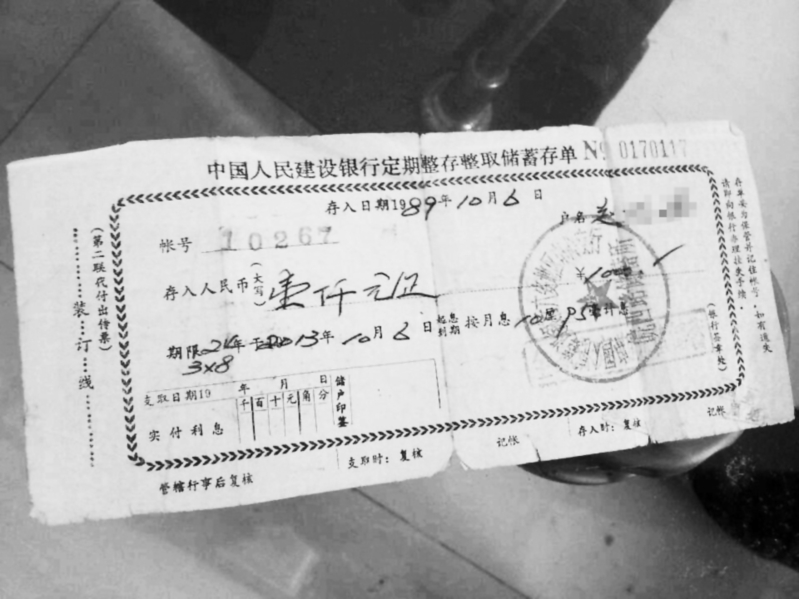 中国人民建设银行定期整存整取储蓄存单 № 0170117
存入日期1989年10月6日
帐号 10267
户名
存入人民币(大写)壹仟元正
期限24年于2013年10月6日起息到期按月息
3x8
支取日期19 年 月 日
千百十元角分
实付利息
储户印鉴
管辖行事后复核
支取时：复核
记帐
存入时：复核
记帐
(第二联代付出传票)
装订线
存单妥为保管并记住帐号，如有遗失
请即向银行办理挂失手续。
(银行签章处)